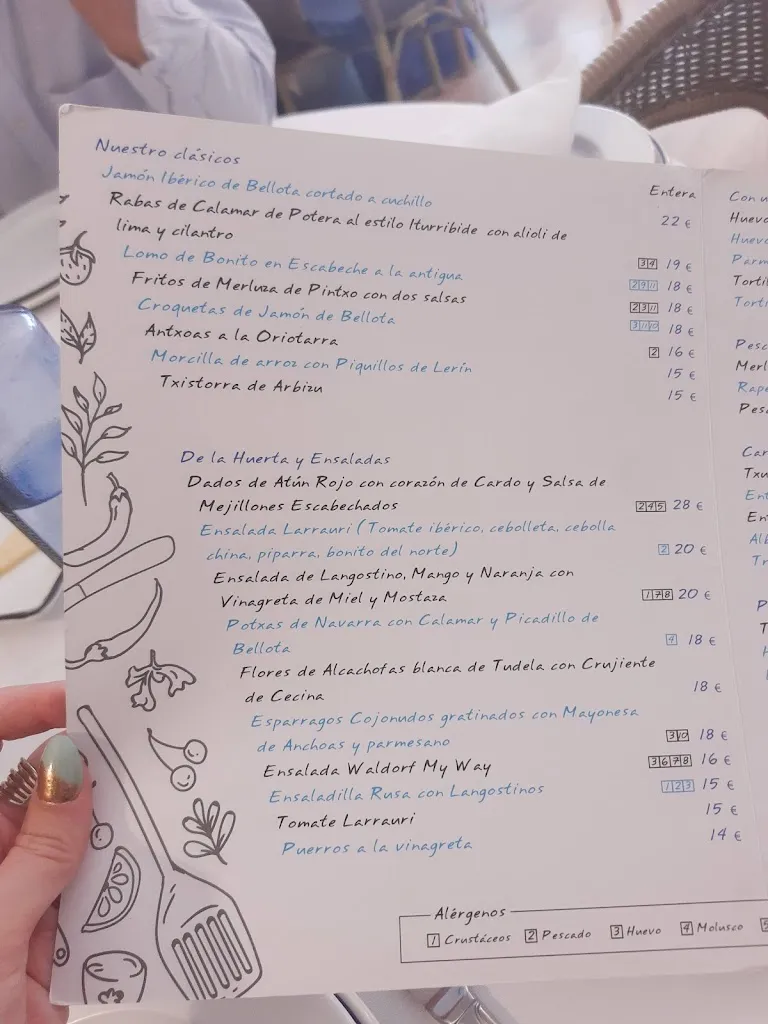 Nuestro clásicos
Entera
Jamón Ibérico de Bellota cortado a cuchillo 22 €
Rabas de Calamar de Potera al estilo Iturribide con alioli de
lima y cilantro 3 4 19 €
Lomo de Bonito en Escabeche a la antigua 2 9 11 18 €
Fritos de Merluza de Pintxo con dos salsas 2 3 11 18 €
Croquetas de Jamón de Bellota 3 11 10 18 €
Antxoas a la Oriotarra 2 16 €
Morcilla de arroz con Piquillos de Lerín 15 €
Txistorra de Arbizu 15 €
De la Huerta y Ensaladas
Dados de Atún Rojo con corazón de Cardo y Salsa de
Mejillones Escabechados 2 4 5 28 €
Ensalada Larrauri (Tomate ibérico, cebolleta, cebolla
china, piparra, bonito del norte) 2 20 €
Ensalada de Langostino, Mango y Naranja con
Vinagreta de Miel y Mostaza 1 7 8 20 €
Potxas de Navarra con Calamar y Picadillo de
Bellota 4 18 €
Flores de Alcachofas blanca de Tudela con Crujiente
de Cecina 18 €
Esparragos Cojonudos gratinados con Mayonesa
de Anchoas y parmesano 3 10 18 €
Ensalada Waldorf My Way 3 6 7 8 16 €
Ensaladilla Rusa con Langostinos 1 2 3 15 €
Tomate Larrauri 15 €
Puerros a la vinagreta 14 €
Alérgenos
1 Crustáceos 2 Pescado 3 Huevo 4 Molusco
Con